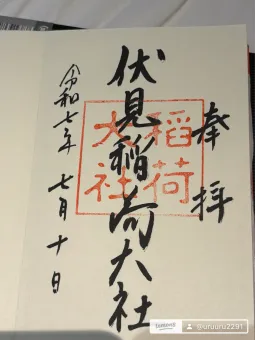 奉拝
伏見稲荷大社
稲荷
大社
令和七年 七月十日
@ufuoru2291